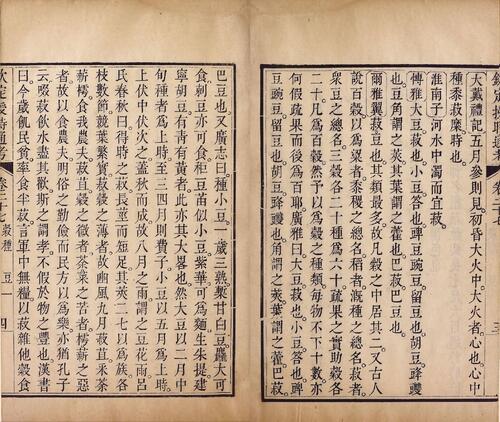 大戴禮記五月參則見初昏大火中大火者心也心中
種黍菽糜時也
淮南子河水中濁而宜菽
博雅大豆菽也小豆荅也豍豆豌豆留豆也胡豆䜶䝄
也豆角謂之莢其葉謂之藿也巴菽巴豆也
爾雅翼菽豆也其類最多故凡穀之中居其二又古人
說百穀以為粱者黍稷之總名稻者溉種之總名菽者
衆豆之總名三穀各二十種為六十蔬果之實助穀各
二十凡為百穀然則穀之種類每物不下十數亦
何假蔬果而後為百耶廣雅曰大豆菽也小豆荅也豍
豆豌豆留豆也胡豆䜶䝄也豆角謂之莢葉謂之藿巴菽
巴豆也又廣志曰種小豆一歲三熟槩甘白豆麤大可
食刺豆亦可食秬豆苗似小豆紫華可為麵生朱提建
寧胡豆有青有黃者此亦其大畧也然大豆以二月中
旬種者為上時至三四月則費子小豆以五月為上時
上伏中伏次之蓋秋而成故八月之雨謂之豆花雨呂
氏春秋曰得時之菽長莖而短足其莢二七以為族各
枝數節競葉繁實菽穀之薄者故豳風九月菽苴采荼
薪樗食我農夫菽苴穀之微者荼菜之苦者樗薪之惡
者故以食農夫明俗之勤儉而民方以為樂亦猶孔子
云啜菽飲水盡其歡斯之謂孝不假於物之豐也漢書
曰今歲飢民貧卒食半菽言軍中無糧以菽雜他穀食
欽定授時通考 卷二十七 穀種 豆一 四